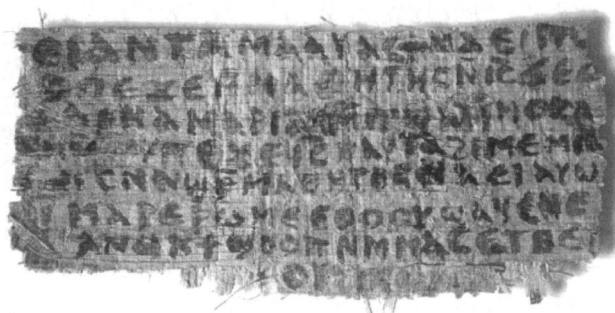 ⲉⲓ ⲁⲛ ⲧⲁⲙⲁⲁⲩ ⲁⲥϯⲛⲁⲉⲓ ⲡⲱ
ⲥ ⲡⲉϫⲉ ⲙⲙⲁⲑⲏⲧⲏⲥ ⲛⲓⲥ ϫⲉ ⲥ
ⲁⲣⲛⲁ ⲙⲁⲣⲓⲁⲙ ⲙⲡϣⲁ ⲙⲙⲟⲥ ⲁ
ⲡⲉϫⲉ ⲓⲥ ⲛⲁⲩ ⲧⲁϩⲓⲙⲉ ⲙⲛ
ⲥⲛⲁϣⲣⲙⲁⲑⲏⲧⲏⲥ ⲛⲁⲉⲓ ⲁⲩⲱ
ⲓ ⲙⲁⲣⲉⲣⲱⲙⲉ ⲉⲑⲟⲟⲩ ϣⲁϥⲉ ⲛⲉ
ⲁⲛⲟⲕ ϯϣⲟⲟⲡ ⲛⲙⲙⲁⲥ ⲉⲧⲃⲉ ⲡ